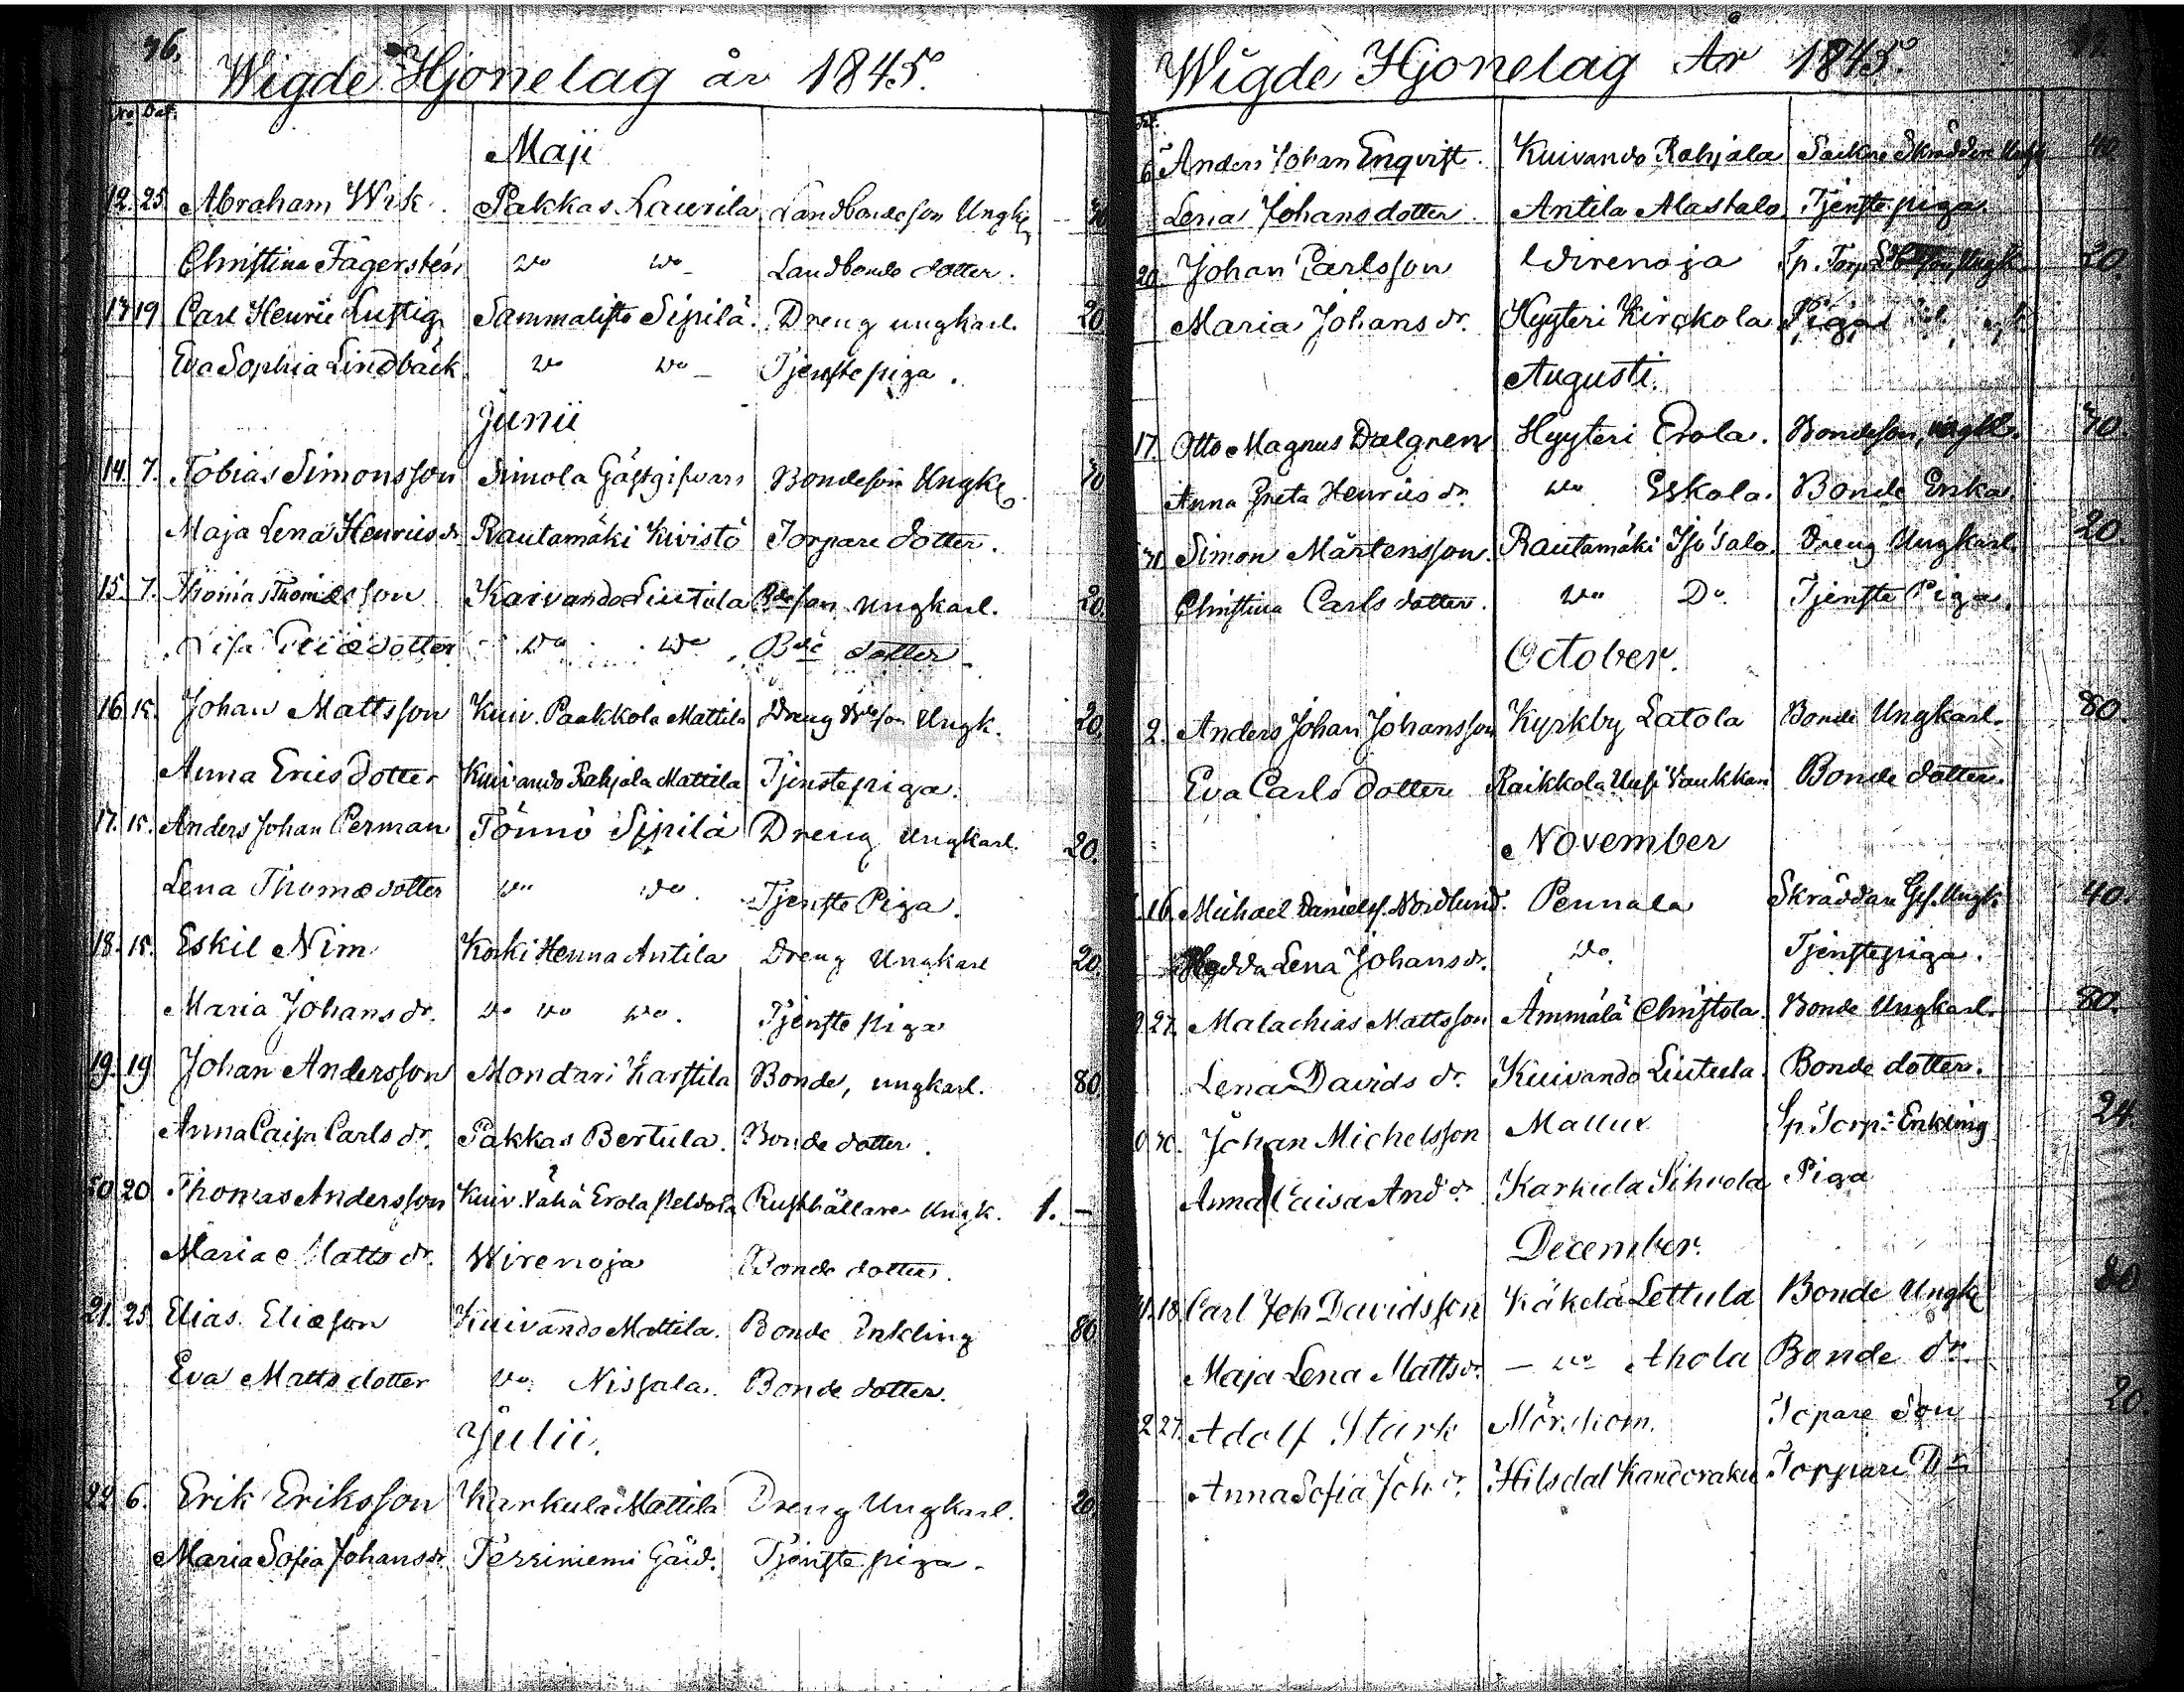 76.
Wigde Hjonelag år 1845.
No Dat.
Maji
12. 25 Abraham Wik. Pakkas Laurila Landbondeson Ungk
Christina Fagersten do do Landbonde dotter.
13 19 Carl Henric Lustig Sammalisto Sipilä. Dreng ungkarl. 20
Eva Sophia Lindbäck do do Tjenstepiga.
Junii
14. 7. Tobias Simonsson Simola Gästgifvars Bondeson Ungk
Maja Lena Henrics dr Rautamäki Kivistö Torpare dotter.
15. 7. Thomas Thomæsson Kuivando Liutula Bdeson ungkarl. 20.
do do Bde dotter
16 15. Johan Mattsson Kuiv. Paakkola Mattila Dreng Bdeson Ungk. 20.
Anna Erics dotter Kuivando Rahjala Mattila Tjenstepiga.
17. 15. Anders Johan Perman Tönnö Sipilä Dreng Ungkarl. 20.
Lena Thomædotter do do Tjenste Piga.
18. 15. Eskil Nim Koski Henna Antila Dreng Ungkarl 20
Maria Johans dr. do do do. Tjenste piga
19. 19 Johan Andersson Mondari Karstila Bonde, ungkarl. 80.
Anna Caisa Carls dr. Pakkas Bertula. Bonde dotter.
20 20 Thomas Andersson Kuiv. Vähä Erola Peldola Rusthållare Ungk. 1. —
Maria Matts dr. Wirenoja Bonde dotter.
21. 25 Elias Eliæson Kuivando Mattila. Bonde Enkling 80.
Eva Matts dotter do Nissala. Bonde dotter.
Julii.
22 6. Erik Eriksson Karkula Mattila Dreng Ungkarl. 20.
Maria Sofia Johans dr. Terriniemi Gård. Tjenste piga.
Wigde Hjonelag År 1845.
6 Anders Johan Enqvist. Kuivando Rahjala Sockne Skräddare 40
Lena Johansdotter. Antila Alastalo Tjenste piga.
20 Johan Carlsson Wirenoja 20.
Maria Johans dr. Hyyteri Kirckola Piga
Augusti.
17. Otto Magnus Dalgren Hyyteri Erola. Bondeson, ungkl.
Anna Greta Henrics dr. do Eskola. Bonde Enka.
31 Simon Mårtensson. Rautamäki Iso Talo. Dreng Ungkarl. 20.
Christina Carls dotter. do Do. Tjenste Piga.
October.
2. Anders Johan Johansson Kyrkby Latola Bonde Ungkarl. 80.
Eva Carls dotter Raikkola Uusi Vaukkari Bonde dotter.
November
16. Michael Danielsf. Nordlund. Pennala Skräddare Ges. Ungk. 40.
Hedda Lena Johans dr. do. Tjenstepiga.
27. Malachias Mattsson Ämmälä Christola. Bonde Ungkarl. 80.
Lena Davids dr. Kuivando Liutula. Bonde dotter.
30. Johan Michelsson Mallux Sp. Torp. Enkling 24.
Anna Caisa And dr Karkula Sihvola Piga
December.
18 Carl Joh Davidsson Käkelä Lettula Bonde Ungk 80
Maja Lena Matts dr. — do Ahola Bonde dr.
27. Adolf Stark Mörskom. Topare Son 20.
Anna Sofia Joh dr. Hilsdal Torppare Dr